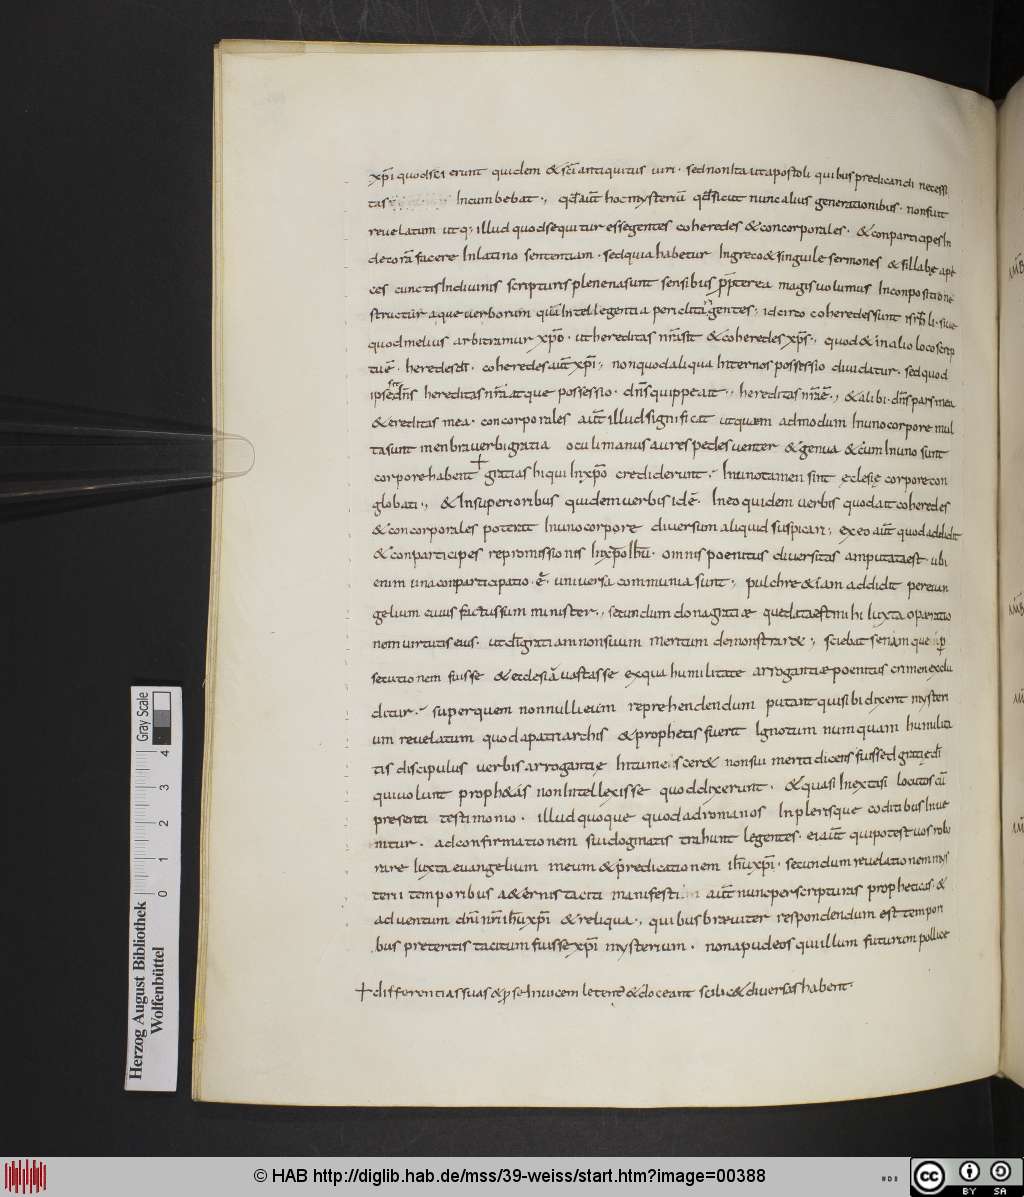 xp̅i quod sci erunt quidem & sc̅i antiquitus uiri · sed non ita ut apostoli quibus predicandi necessi
tas incumbebat ·, qd̅ aut̅ hoc mysteriu̅ qd̅ sicut nunc aliis generationibus · non fuit
reuelatum ut q; illud quod sequitur esse gentes coheredes & concorporales · & conparticipes in
decora̅ facere In latino sententiam · sed quia habetur In greco & singule sermones & sillabę api
ces cunctis In diuinis scripturis plenena sunt sensibus pp̅terea magis uolumus In conpositione
structur aque uerborum qua̅ Intellegentia periclitari gentes ·, idcirco coheredes sunt isrh̅li · siue
quod melius arbitramur xpo̅ · ut hereditas nr̅a sit & coheredes xps̅ ·, quod & in alio loco scrip
tu e̅ · heredes di̅ · coheredes aut̅ xp̅i ·, non quod aliqua Inter nos possessio diuidatur · sed quod
ipse dn̅s hereditas nr̅a atque possessio · dn̅s quippe ait ·, hereditas nr̅a e̅ ·, & alibi · dn̅s pars mea
& ereditas mea · concorporales aut̅ illud significat ut quam admodum In uno corpore mul
ta sunt menbra uerbi gratia oculi manus aures pedes uenter & genua & cum In uno sunt
corpore habent + gratias hi qui In xpo̅ crediderunt · In uno tamen sint eclesię corpore con
globati ·, & In superioribus quidem uerbis ide̅ · In eo quidem uerbis quod ait coheredes
& concorporales poterat In uno corpore diuersum aliquid suspicari ·, ex eo aut̅ quod addidit
& conparticipes repromissionis In xpo̅ Ih̅u · omnis poenitus diuersitas amputata est · ubi
enim una conparticipatio · e̅ · uniuersa communia sunt ·, pulchre & iam addidit per euan
gelium cuius factus sum minister ·, secundum dona gratiae que data est mihi Iuxta operatio
nem uirtutis eius · ut di̅ gratiam non suum meritum demonstrar& ·, sciebat se nam que p
secutionem fuisse & ecclesia̅ uastasse ex qua humilitate arrogantiae poenitus crimen exclu
ditur · super quem nonnulli eum reprehendendum putant qui sibi dixerit mysteri
um reuelatum quod a patriarchis & prophetis fuerit Ignotum numquam humilita
tis discipulus uerbis arrogantię Intumescer& non sui meriti dicens fuisse d gratię di̅
qui uolunt proph&as non Intellexisse quod dixerunt · & quasi In extasi locutos cu̅
presenti testimonio · illud quoque quod ad romanos In plerisque codicibus Inue
nitur · ad confirmationem sui dogmatis trahunt legentes · ei aut̅ qui potest uos robo
rare Iuxta euangelium meum & predicationem ih̅u xp̅i · secundum reuelationem mys
terii temporibus a&ernis taciti manifesti aut̅ nunc per scripturas propheticas · &
aduentum dn̅i nr̅i ih̅u xp̅i & reliqua ·, quibus braeuiter respondendum est tempori
bus preteritis tacitum fuisse xp̅i mysterium · non apud eos qui illum futurum pollice
+ differentias suas & p se Inuicem letent & doceant scilic& diuersos habent
Herzog August Bibliothek
Wolfenbüttel
Gray Scale
0 1 2 3 4
© HAB http://diglib.hab.de/mss/39-weiss/start.htm?image=00388
cc BY SA